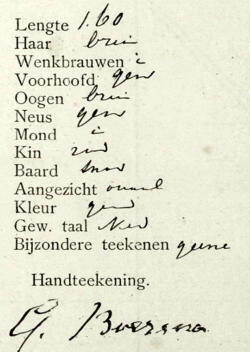 Lengte 1.60
Haar brui
Wenkbrauwen i
Voorhoofd gew
Oogen brui
Neus gew
Mond i
Kin rond
Baard
Aangezicht ovaal
Kleur gew
Gew. taal Ned
Bijzondere teekenen geene
Handteekening.